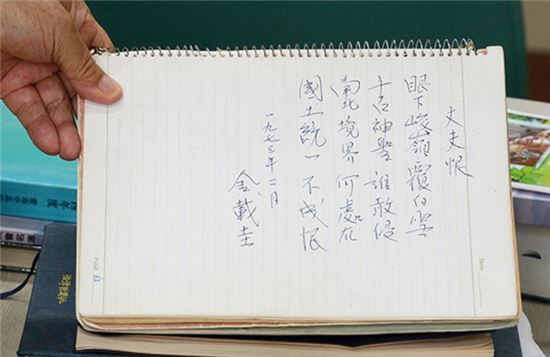 丈夫恨
眼下峻嶺覆白雪
千古神聖誰敢侵
南北境界何處在
國土統一不成恨
一九七三年二月
金載圭